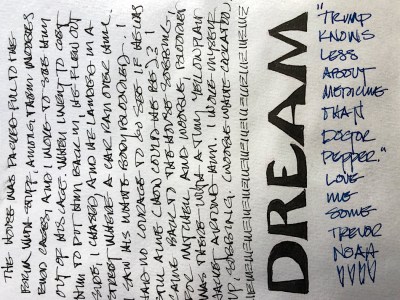 THE HOUSE WAS PACKED FULL TO THE
BRIM WITH STUFF. AMONG THEM
BIRD CAGES, AND I WOKE TO SEE HIM
OUT OF HIS CAGE. WHEN I WENT TO
HIM TO PUT HIM BACK IN, HE FLEW OUT
SIDE, I CHASED, AND HE LANDED IN A
STREET WHERE A CAR RAN OVER HIM.
I SAW HIS WHITE BODY BLOODIED. I
HAD NO COURAGE TO GO SEE IF HE WAS
STILL ALIVE (HOW COULD HE BE?) I
CAME BACK TO THE HOUSE SOBBING,
FOR MITCHELL AND BLOODIED
WAS THERE WITH A TINY YELLOW PLAID
JACKET AROUND HIM. I WOKE MYSELF
UP SOBBING. WHITE COCKATOO).
DREAM
"TRUMP
KNOWS
LESS
ABOUT
MEDICINE
THAN
DOCTOR
PEPPER."
LOVE
ME
SOME
TREVOR
NOAH